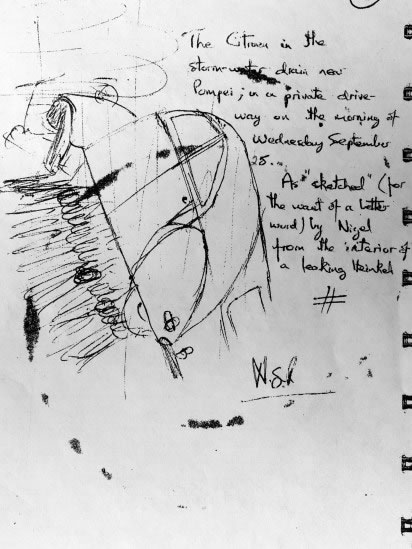 The Citroen in the
storm-water drain near
Pompei; in a private drive-
way on the morning of
Wednesday September
25..
As "sketched" (for
the want of a better
word) by Nigel
from the interior of
a leaking Heinkel
N.S.R